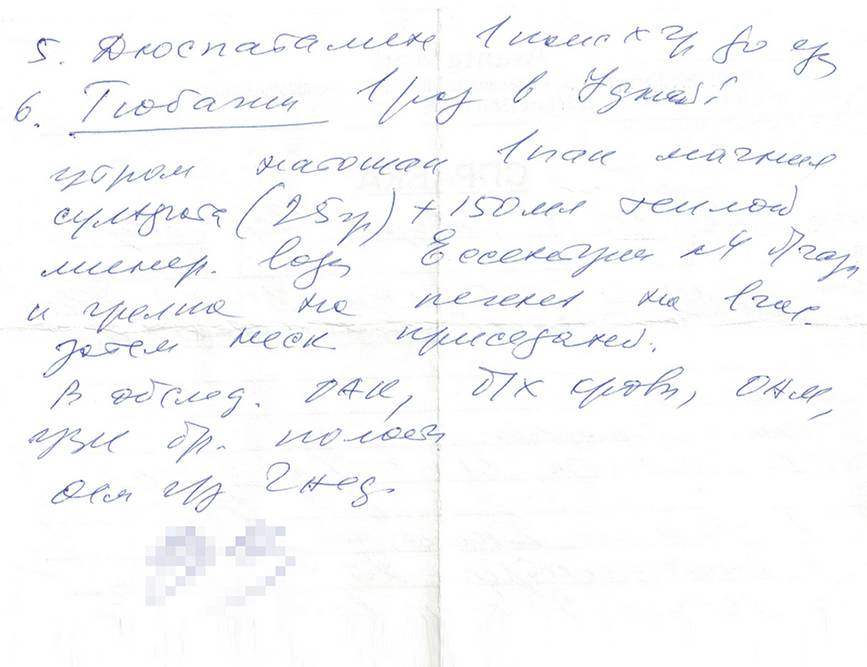 5. Дюспаталин 1 х 2р до еды
6. Тюбажи 1 раз в дней:
утром натощак 1 пак магния
сульфата (25гр) + 150 мл теплой
минер. воды Ессентуки №4 б/газа
и грелка на печень на 1 час.
затем неск приседаний.
В обслед. ОАК, б/х крови, ОАМ,
узи бр. полости
осм ч/з 2 нед.